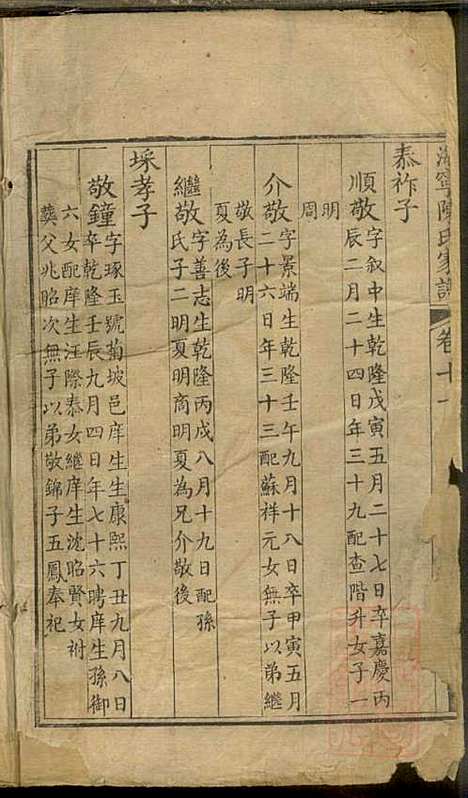 海寧陳氏家譜 卷十一
泰祚子
順敬 字叙中生乾隆戊寅五月二十七日卒嘉慶丙
辰二月二十四日年三十九配查階升女子一
明
周
介敬 字景端生乾隆壬午九月十八日卒甲寅五月
二十六日年三十三配蘇祥元女無子以弟繼
敬長子明
夏為後
繼敬 字善志生乾隆丙戌八月十九日配孫
氏子二明夏明商明夏為兄介敬後
埰孝子
敬鐘 字琢玉號菊坡邑庠生生康熙丁丑九月八日
卒乾隆壬辰九月四日年七十六聘庠生孫御
六女配庠生汪際泰女繼庠生沈昭賢女祔
葬父兆昭次無子以弟敬錦子五鳳奉祀